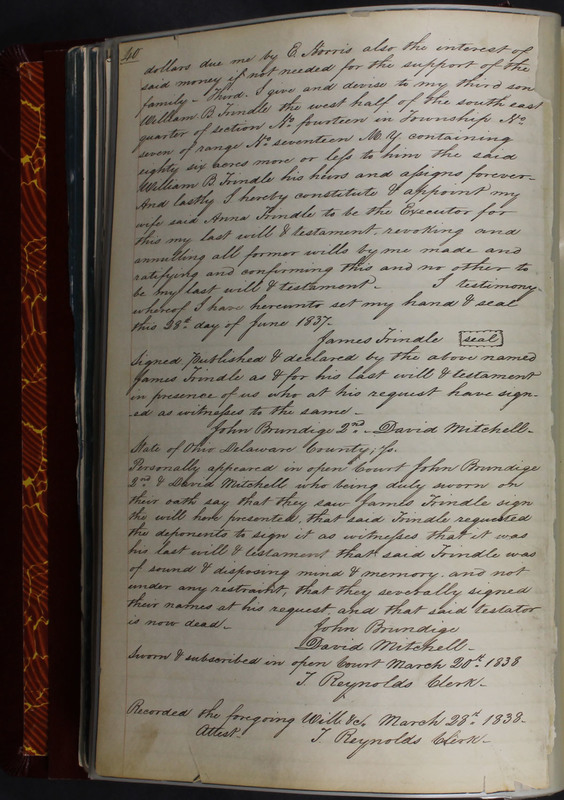 40
dollars due me by E. Norris also the interest of
said money if not needed for the support of the
family – Third. I give and devise to my third son
William B Trindle the west half of the south east
quarter of section No fourteen in Township No
seven of range No seventeen M. Y. containing
eighty six acres more or less to him the said
William B Trindle his heirs and assigns forever–
And lastly I hereby constitute & appoint my
wife said Anna Trindle to be the Executor for
this my last will & testament, revoking and
annulling all former wills by me made and
ratifying and confirming this and no other to
be my last will & testament – I testimony
whereof I have hereunto set my hand & seal
this 28th day of June 1837–
James Trindle seal
Signed Published & declared by the above named
James Trindle as & for his last will & testament
in presence of us who at his request have sign-
ed as witnesses to the same –
John Brundige 2nd – David Mitchell –
State of Ohio Delaware County, ss.
Personally appeared in open Court John Brundige
2nd & David Mitchell who being duly sworn on
their oath say that they saw James Trindle sign
the will here presented, that said Trindle requested
the deponents to sign it as witnesses that it was
his last will & testament that said Trindle was
of sound & disposing mind & memory, and not
under any restraint, that they severally signed
their names at his request, and that said testator
is now dead –
John Brundige
David Mitchell –
Sworn & subscribed in open Court March 20th 1838
T Reynolds Clerk –
Recorded the foregoing Will &c, March 28th 1838 –
Attest – T Reynolds Clerk –